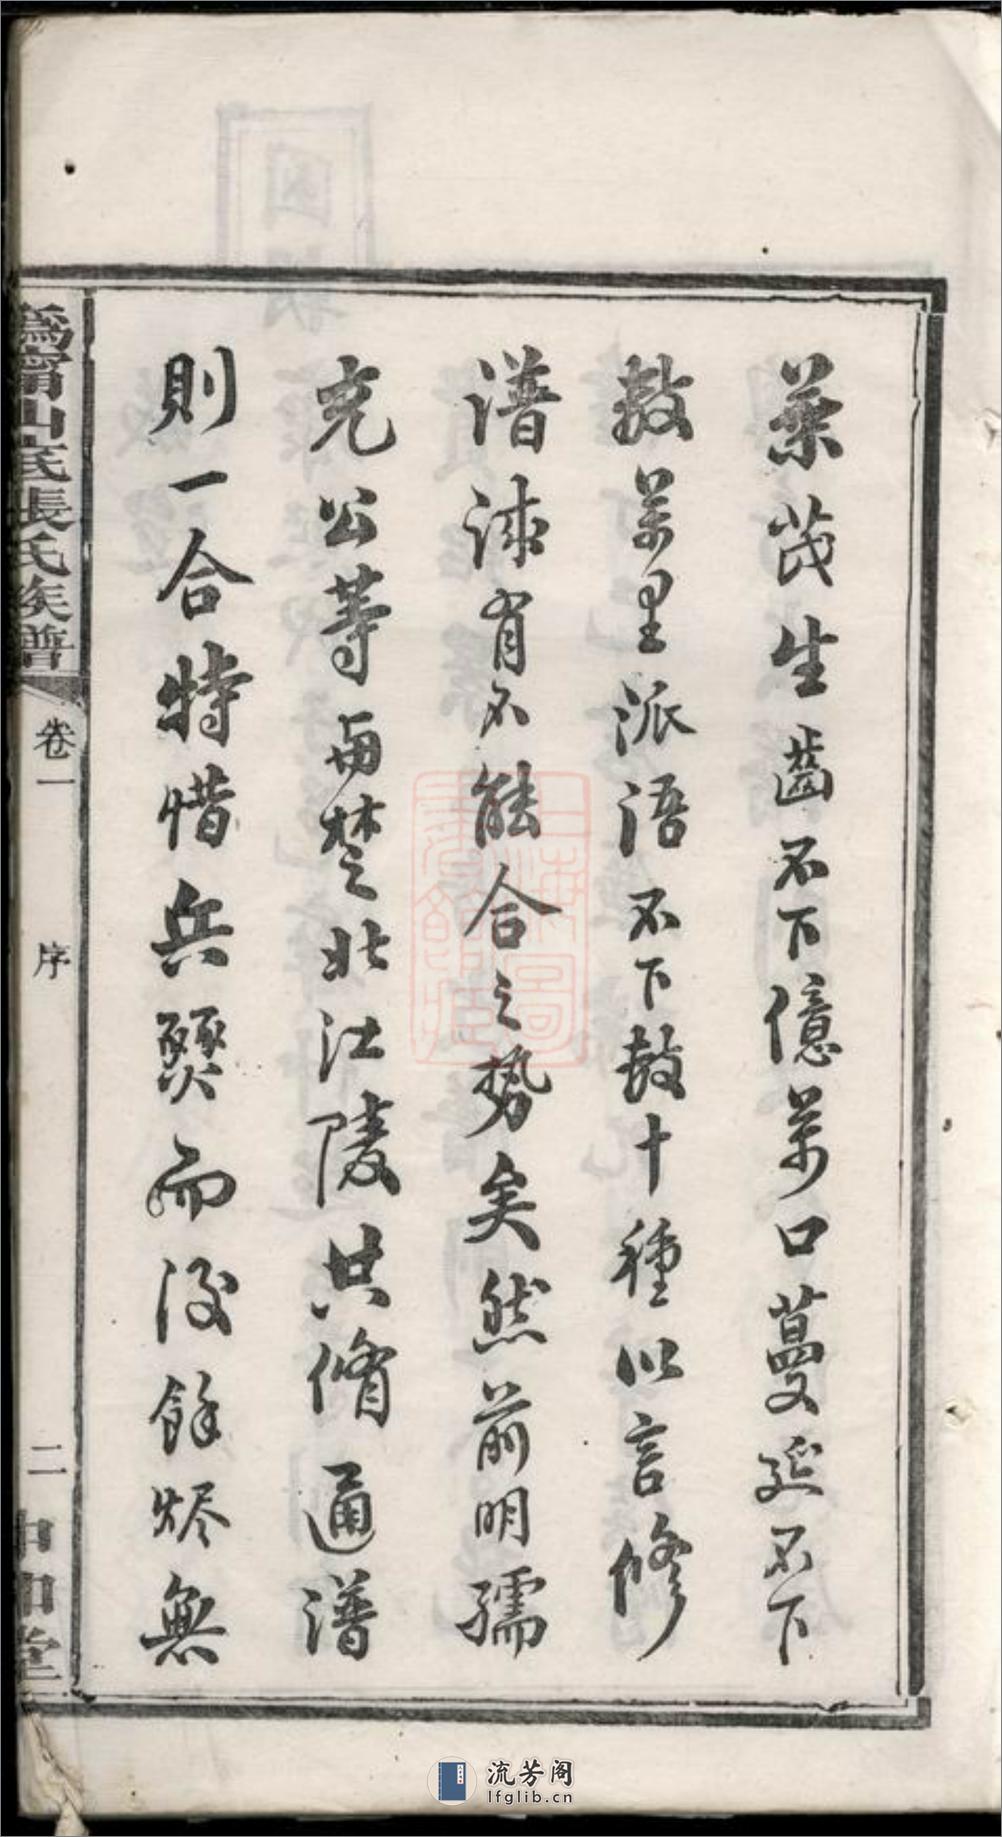 葉茂生齒不下億萬口蔓延不下
数萬里派語不下数十種以言修
譜諫有不能合之势矣然前明孺
充公等與楚北江陵共脩通譜
則一合特惜兵燹而後餘烬無
溈甯山底張氏族譜
卷一
序
二
中和堂
上海圖書館藏
流芳阁
lfglib.cn